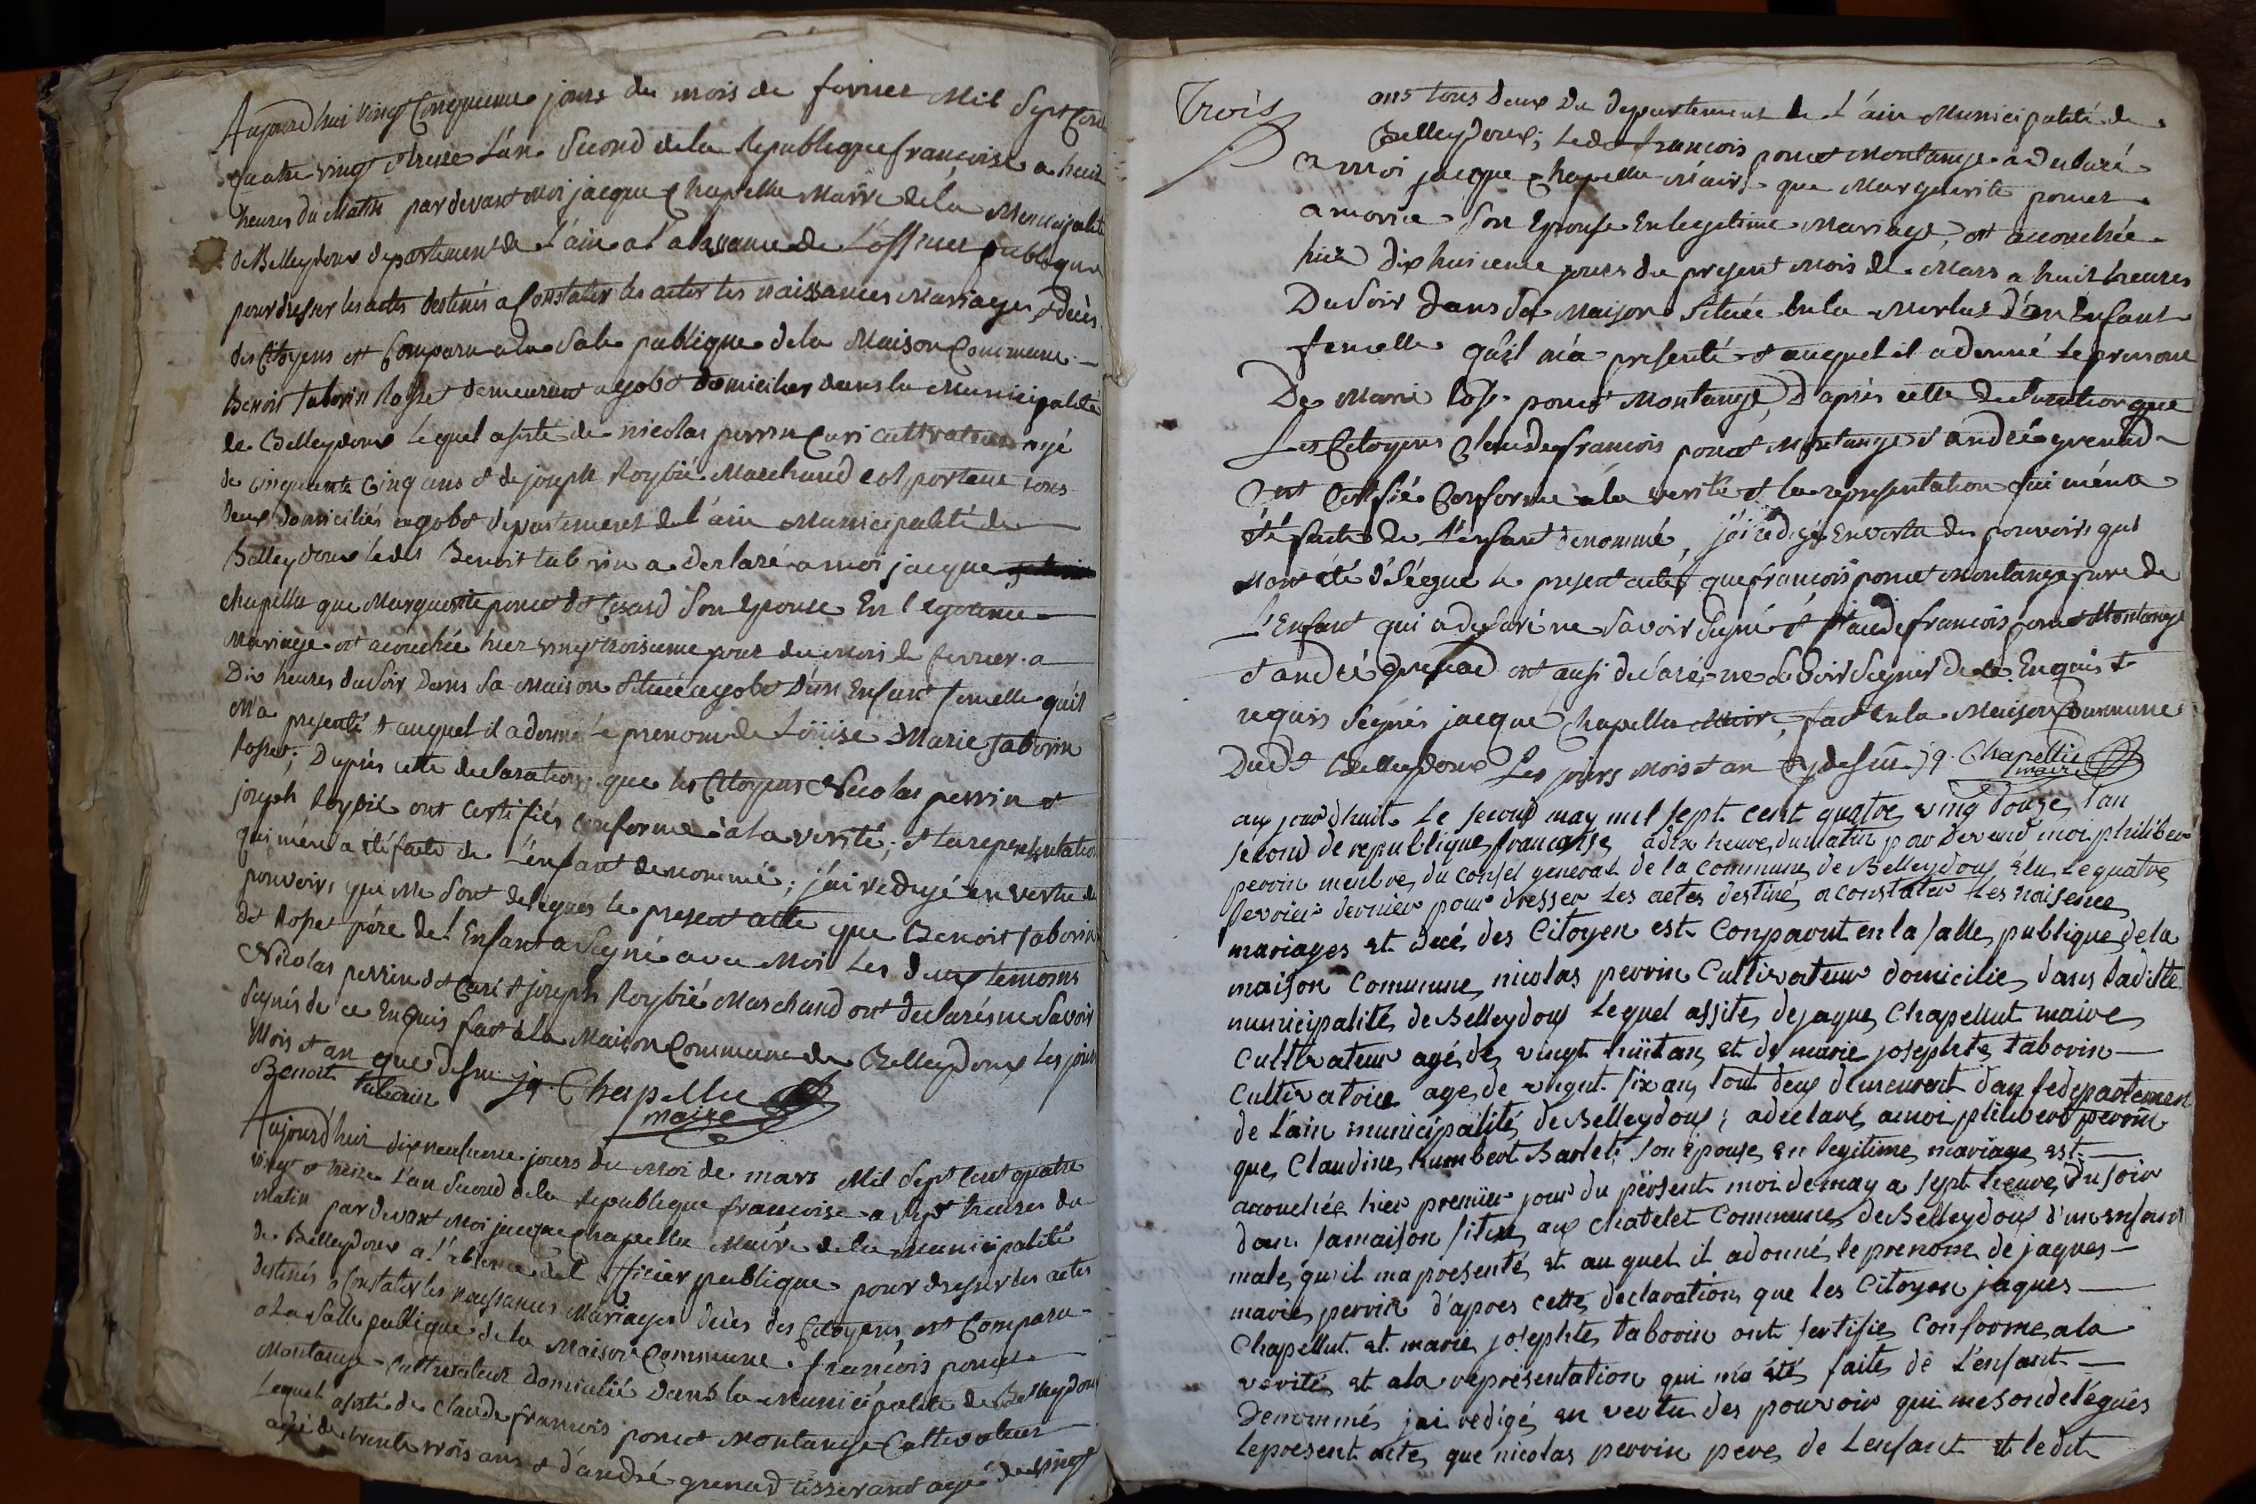 Aujourd'hui vingt Cinquieme jours du mois de fevrier Mil Sept Cent
quatre vingt treize L'an Second de la Republique françoise a huit
heures du Matin pardevant Moi jacque Chapellu Maire de la Municipalité
de Belleydoux departement de L'ain a L'absence de L'officier publique
pour dresser les actes destinés a Constater les actes les naissances Mariages, & décès
des Citoyens est Comparu a la Sale publique de la Maison Commune
Benoit tabvrin Rosset demeurant a gobet domicilier dans la Municipalité
de Belleydoux lequel asisté de nicolas perrin Curi cultivateur agé
de cinquante cinq ans & de joseph Roybié Marchand colporteur tous
deux domiciliés a gobet departement de l'ain Municipalité de
Belleydoux ledit Benoit tabvrin a declaré a moi jacque
chapellu que Marguerite poncet dt Cesard Son Epouse En legitime
Mariage est acouchée hier vingt troisieme jour du Mois de fevrier a
Dix heures du Soir Dans Sa Maison Située a gobet D'un Enfant femelle qu'il
M'a presenté & auquel il a donné le prenom de Loüise Marie tabvrin
Rosset; D'après cette declaration que les Citoyens Nicolas perrin &
joseph Roybié ont certifiés conforme à la verité; & la representation
qui m'en a été faite de L'enfant denommé; j'ai redigé en vertu des
pouvoirs qui Me Sont delegués le present acte que Benoit tabvrin
dt Rosset pére de l'Enfant a Signé avec Moi Les deux temoins
Nicolas perrin dt Curi & joseph Roybié Marchand ont declarés ne Savoir
Signés de ce Enquis fait à la Maison Commune de Belleydoux Les jour
Mois & an que dessu jq. Chapellu
Benoit tabvrin maire
Aujourd'hui dixneufieme jours du Moi de mars Mil Sept Cent quatre
vingt & treize L'an Second de la Republique francoise a Sept heures du
Matin par devant Moi jacque Chapellu Maire de la Municipalité
de Belleydoux a l'absence de l'officier publique pour dresser les actes
destinés a Constater les naissances Mariages décès des Citoyens, est Comparu
a la Salle publique de la Maison Commune françois poncet
Montange Cultivateur domicilié dans la Municipalité de Belleydoux
Lequel asisté de Claude francois poncet Montange Cultivateur
agé de trente trois ans & d'andré grenard tisserant agé de vingt
Trois
ans tous deux du departement de L'ain Municipalité de
Belleydoux; Ledt françois poncet Montange a declaré
a moi jacque Chapellu Maire que Marguerite poncet
a Morice Son Epouse En legitime Mariage, est acouchée
hier dix huitieme jours du present Mois de Mars a huit heures
Du Soir Dans Sa Maison Située En la Merlat D'un Enfant
femelle qu'il m'a presenté & auquel il a donné le prenom
De Marie Rose poncet Montange, D'après cette declaration que
Les Citoyens Claude francois poncet Montange & andré grenard
ont Certifié Conforme à la verité & la representation qui m'en a
été faite de l'enfant denommé, j'ai redigé En vertu des pouvoirs qui
Mont été delégué le present acte que françois poncet Montange pere de
L'Enfant qui a declaré ne Savoir Signé & Claude francois poncet Montange
& andré grenard ont ausi declaré ne Savoir Signer de ce Enquis &
requis Signés jacque Chapellu Maire, fait En la Maison Commune
Dudt Belleydoux Les jours Mois & an Cy dessu jq. Chapellu
maire
aux jour dhuit Le second may mil sept cent quatre ving douze l'an
second de republique francaise, a dix heure du matin par devend moi philibert
perrin menbre, du consel general de la commune, de Belleydoux élu, le quatre
fevrier dernier pour dresser les actes destiné a constater les naisence
mariages et decé des Citoyen est Conparout en la salle, publique de la
maison Commune nicolas perrin Cultivateur domicilie, dans ladiste
municipalité, de Belleydoux Lequel assite, de jaque, Chapellut maire
cultivateur agé, de, vingt huit an, et de marie josephte, tabovin
Cultivatrice age, de vingt six an, tout deux demeurent dan le departemen
de l'ain municipalité, de Belleydoux; adeclaré, a moi philibert perrin
que, Claudine, humbert Barlet, son Epouse, en legitime, mariage, est
acouchée, hier premier jour du persent moi de may a sept heure, du soir
dan, sa maison sitiée, au chatelet Commune, de Belleydoux d'un enfant
male, qu'il ma presenté, et au quel il a donné, le prenom de jaques
marie, perrin d'apres cette, declaration que les Citoyen jaques
Chapellut et marie, josephte, tabovin ont sertifie, Conforme, a la
verité, et a la representation qui m'a été, faite de L'enfant
Denommé, jai redigé, en vertu des pouvoir qui me son delégués
le present acte, que nicolas perrin pere, de Lenfant et ledit